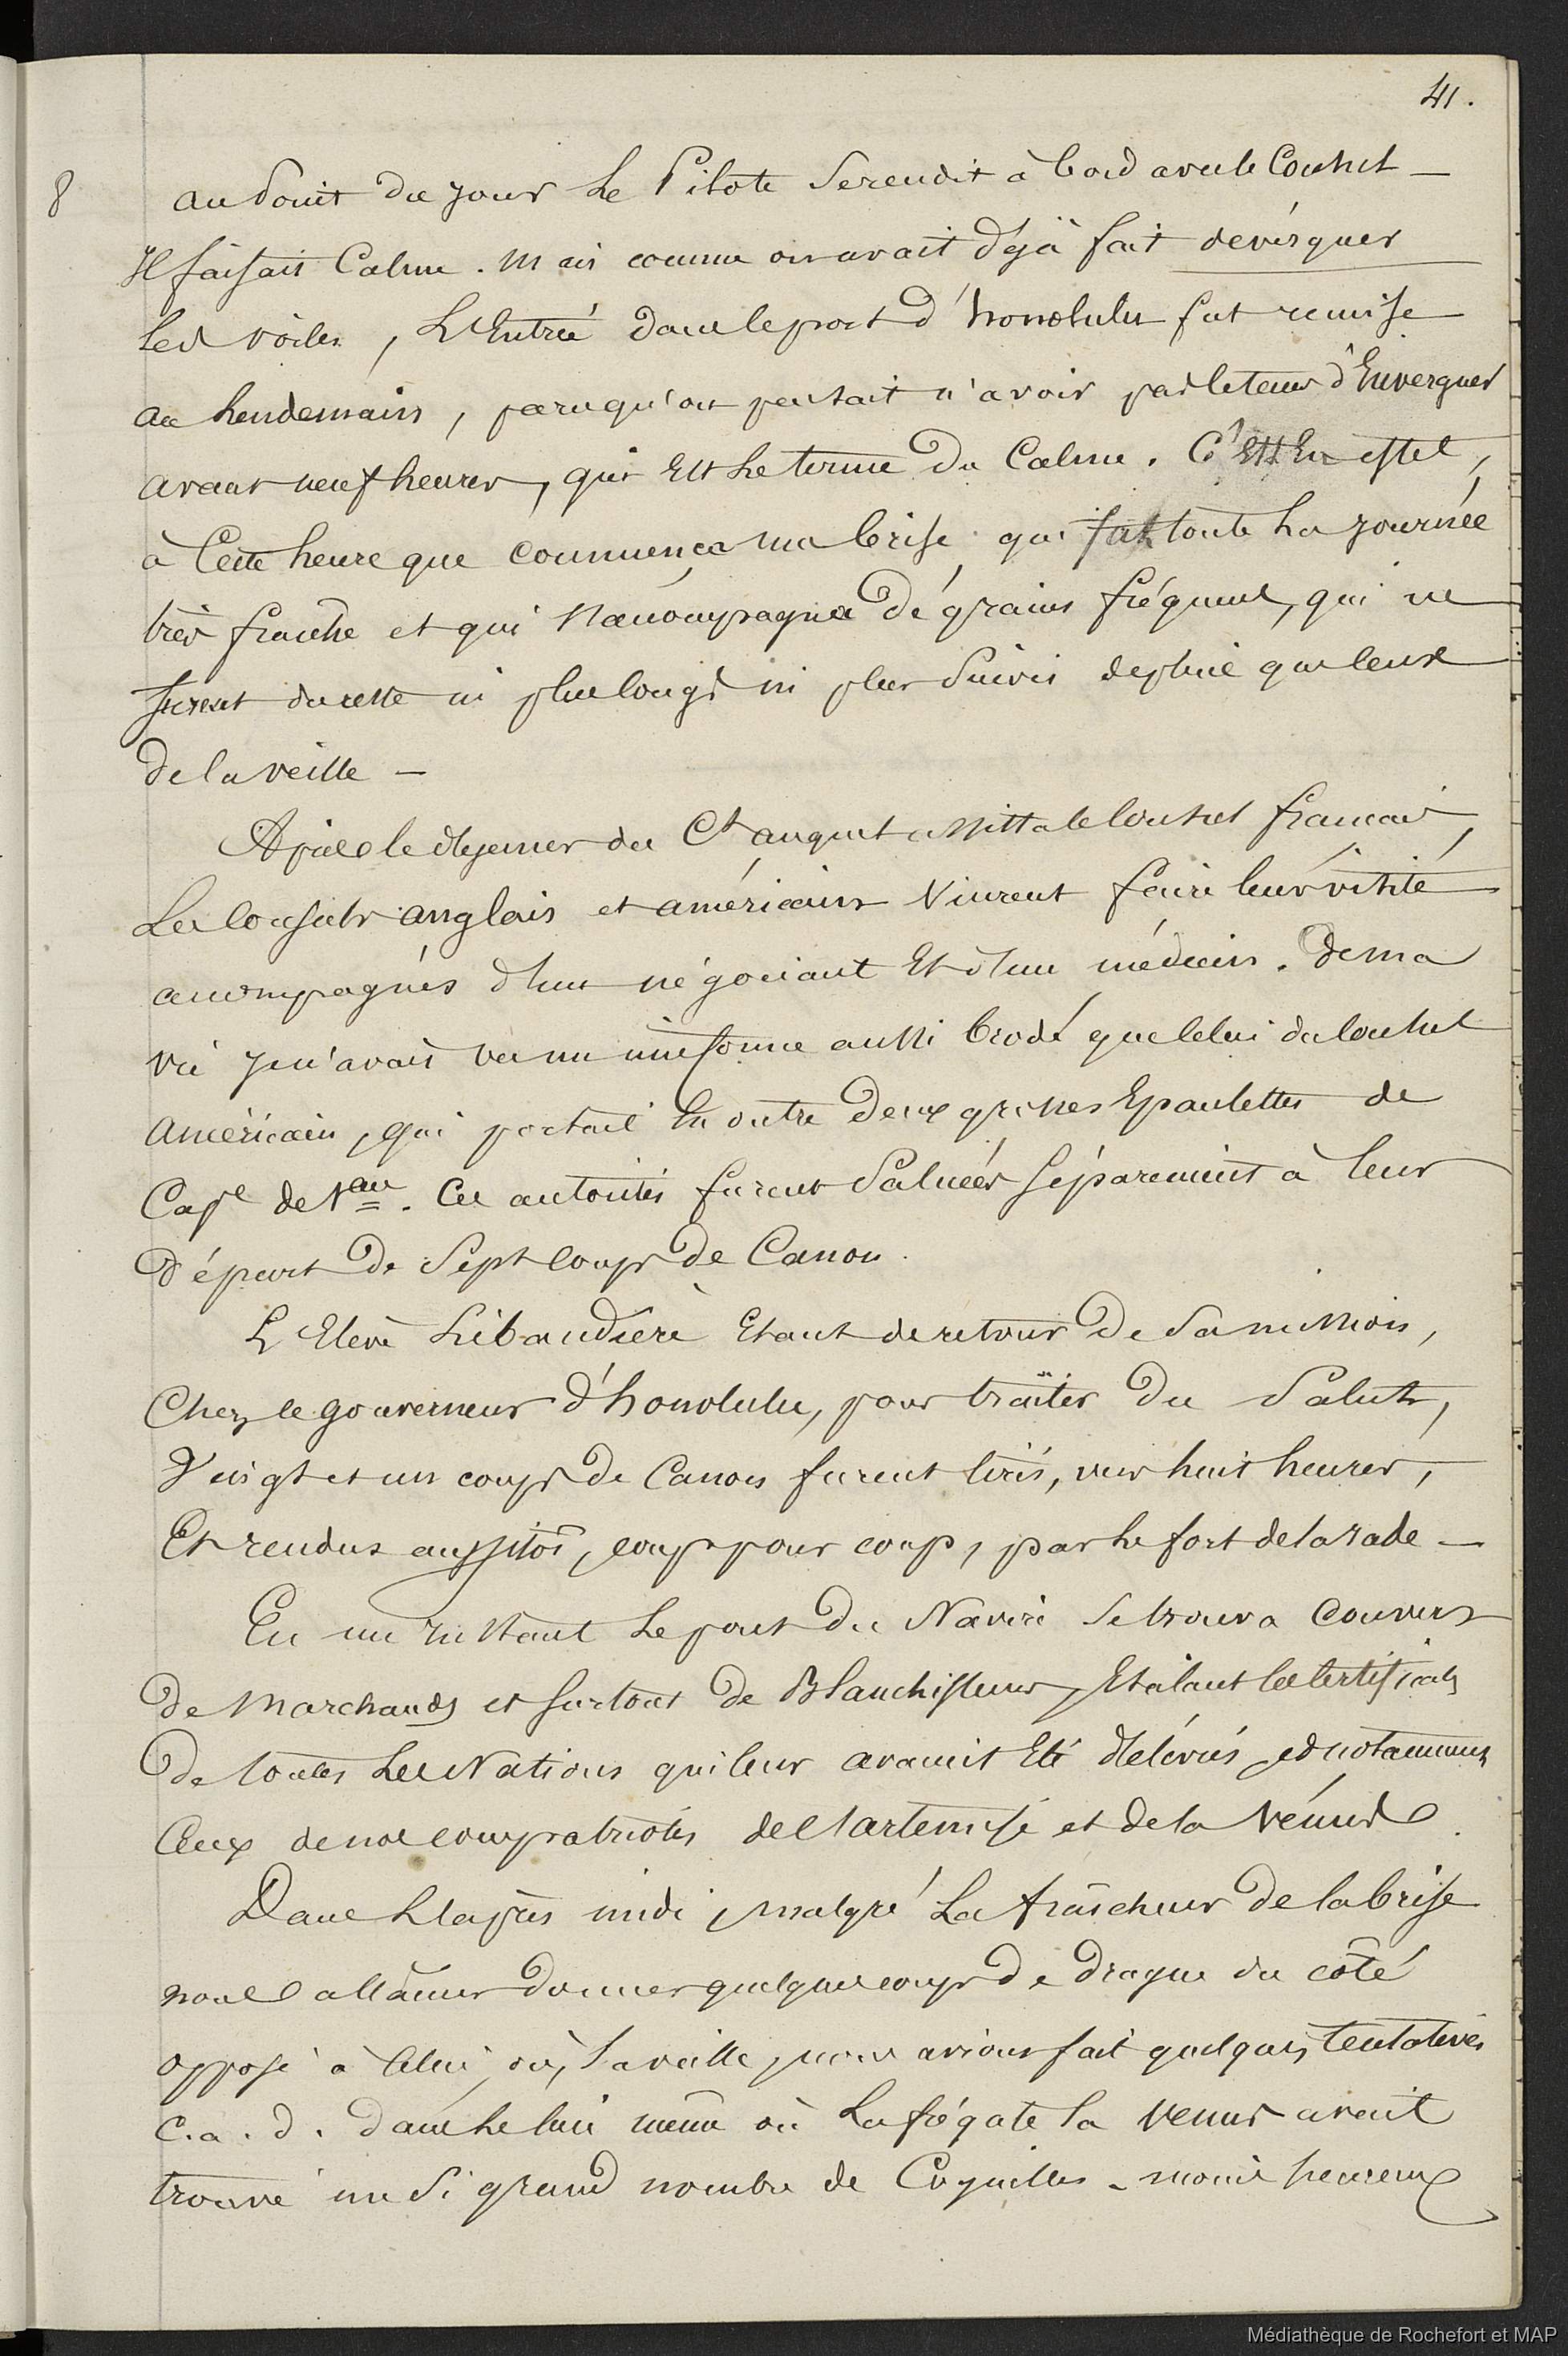 41.
8
au point du jour le Pilote se rendit à bord avec le Consul —
Il faisait Calme. Mais comme on avait déjà fait déverguer
les voiles, L'Entrée dans le port d'honolulu fut remise
au lendemain, parcequ'on pensait n'avoir pas le tems d'Enverguer
avant neuf heures, qui Est le terme du Calme. C'Est En effet,
à Cette heure que commença une brise qui fut toute la journée
très fraiche et qui s'accompagna de grains fréquens, qui ne
furent du reste ni plus longs ni plus suivis de pluie que ceux
de la veille —
Après le déjeuner du Ct auquel assista le Consul francais,
Les Consuls anglais et américains Vinrent faire leur visite
accompagnés d'un négociant Et d'un médecin. De ma
vie je n'avais vu un uniforme aussi brodé que Celui du Consul
américain, qui portait En outre deux grosses Epaulettes de
Cape de Vau. Ces autorités furent Saluées séparement à leur
départ de Sept Coups de Canon.
L'Elève Libaudière Etant de retour de Sa mission,
Chez le gouverneur d'honolulu, pour traiter du Salut,
Vingt et un coups de Canon furent tirés, vers huit heures,
Et rendus aussitôt, coup pour coup, par le fort de la rade —
En un instant le pont du Navire se trouva Couvert
de Marchands et surtout de Blanchisseurs, Etalant les Certificats
de toutes les Nations qui leur avaient Eté délivrés, et notamment
Ceux de nos compatriotes de l'artemise et de la Vénus.
Dans l'après midi, malgré La fraîcheur de la brise
nous allâmes donner quelques coups de drague du côté
opposé à Celui où, la veille, nous avions fait quelques tentatives
c. a. d. dans le lieu même où la frégate la Venus avait
trouvé un Si grand nombre de Coquilles. moins heureux
Médiathèque de Rochefort et MAP